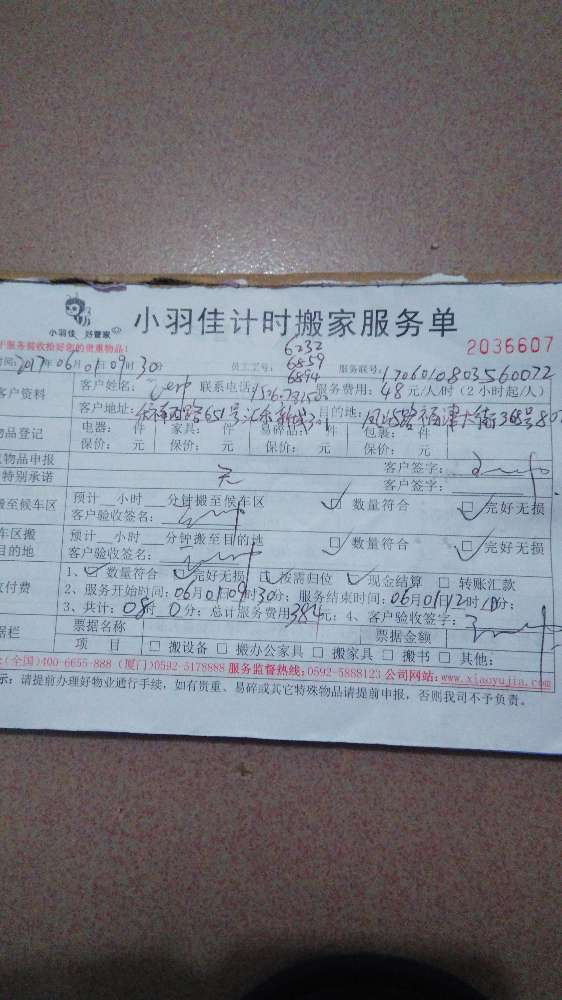 小羽佳 好管家
小羽佳计时搬家服务单
服务验收拾好您的贵重物品！
2036607
6232
6859
6894
时间：2017年06月01日09时30分 员工工号： 服务联号：1706010803560072
客户资料 客户姓名： 联系电话： 服务费用：48元/人/时（2小时起/人）
客户地址： 651号 目的地：
物品登记 电器： 件 家具： 件 易碎品： 件 包裹： 件
保价： 元 保价： 元 保价： 元 保价： 元
物品申报 客户签字：
特别承诺 无 客户签字：
搬至候车区 预计 小时 分钟搬至候车区 数量符合 完好无损
客户验收签名：
车区搬 预计 小时 分钟搬至目的地 数量符合 完好无损
目的地 客户验收签名：
付费 1、 数量符合 完好无损 按需归位 现金结算 转账汇款
2、服务开始时间：06月01日09时30分；服务结束时间：06月01日12时10分；
3、共计：08时0分；总计服务费用384元；4、客户验收签字：
据栏 票据名称 票据金额
项 目 搬设备 搬办公家具 搬家具 搬书 其他：
(全国)400-6655-888 (厦门)0592-5178888 服务监督热线：0592-5888123 公司网站：www.xiaoyujia.com
示：请提前办理好物业通行手续，如有贵重、易碎或其它特殊物品请提前申报，否则我司不予负责。